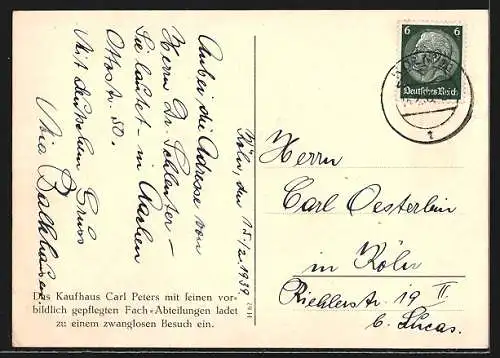 Köln, den 15./2. 1939.
Anbei die Adresse von
Herrn Dr. Schlenter –
Sie lautet – in Aachen
Ottostr. 80.
Mit deutschem Gruss
Balkhausen.
Das Kaufhaus Carl Peters mit seinen vor-
bildlich gepflegten Fach-Abteilungen ladet
zu einem zwanglosen Besuch ein.
6 6
Deutsches Reich
Herrn
Carl Oesterlein
in Köln
Riehlerstr. 19 II
b. Lucas.